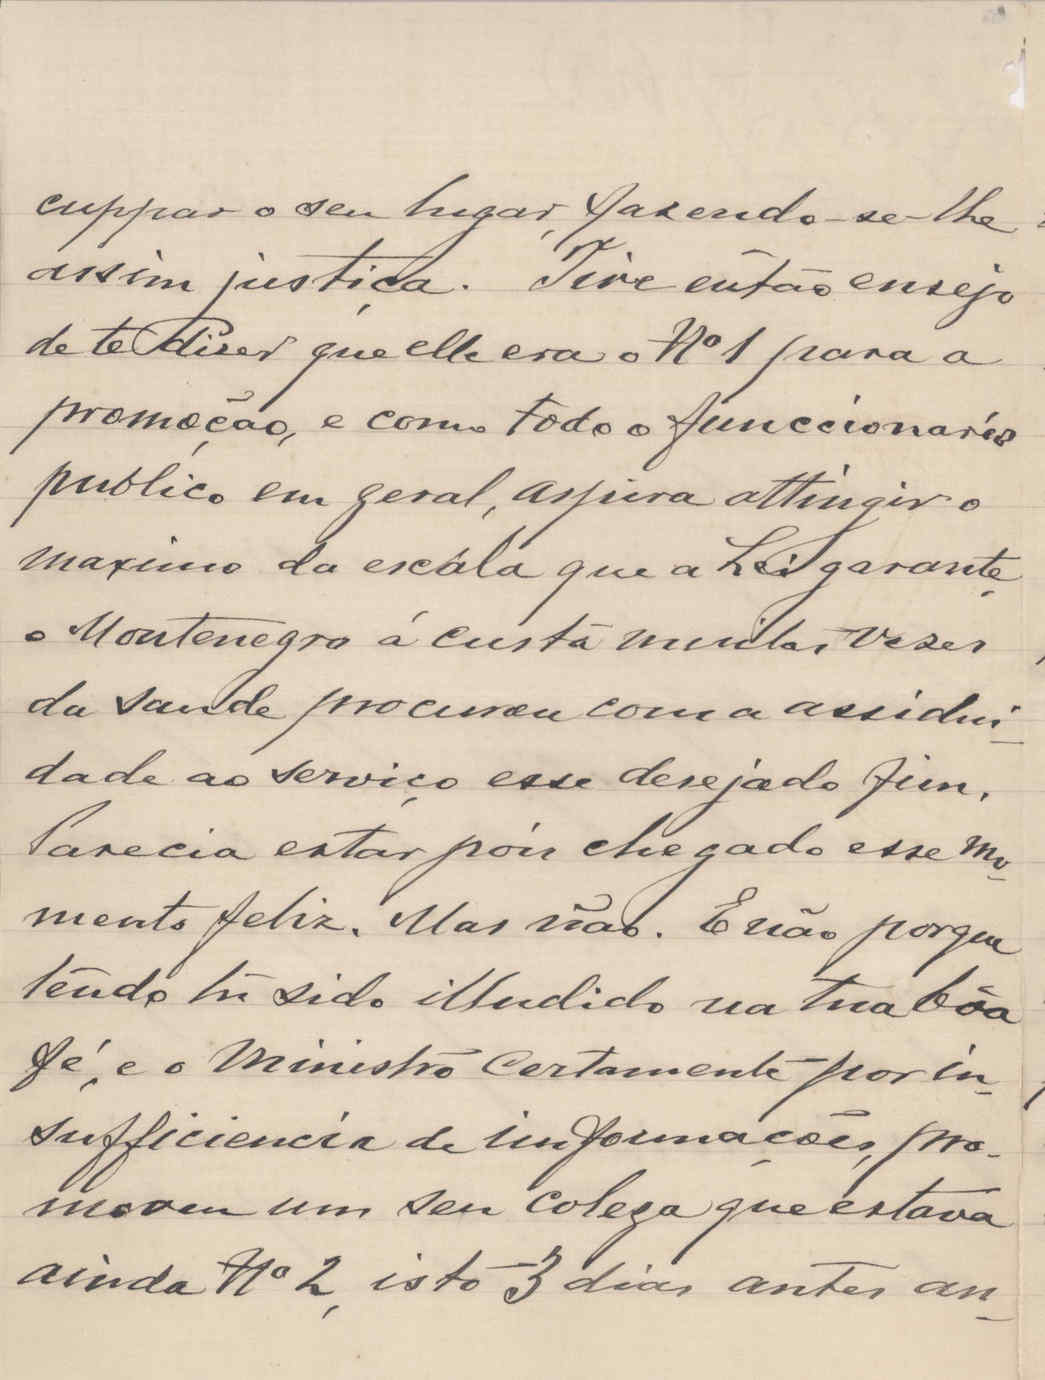 cuppar o seu lugar, fazendo-se-lhe
assim justiça. Tive então ensejo
de te dizer que elle era o Nº 1 para a
promoção, e como todo o funccionario
publico em geral, aspira attingir o
maximo da escála que a Lei garante
o Montenegro á custa muitas vezes
da saude procurou com a assidui-
dade ao serviço esse desejado fim.
Parecia estar pois chegado esse mo-
mento feliz. Mas não. E não porque
tendo tu sido illudido na tua bôa
fé, e o Ministro certamente por in-
sufficiencia de informações, pro-
moveu um seu colega que estava
ainda Nº 2, isto 3 dias antes an-